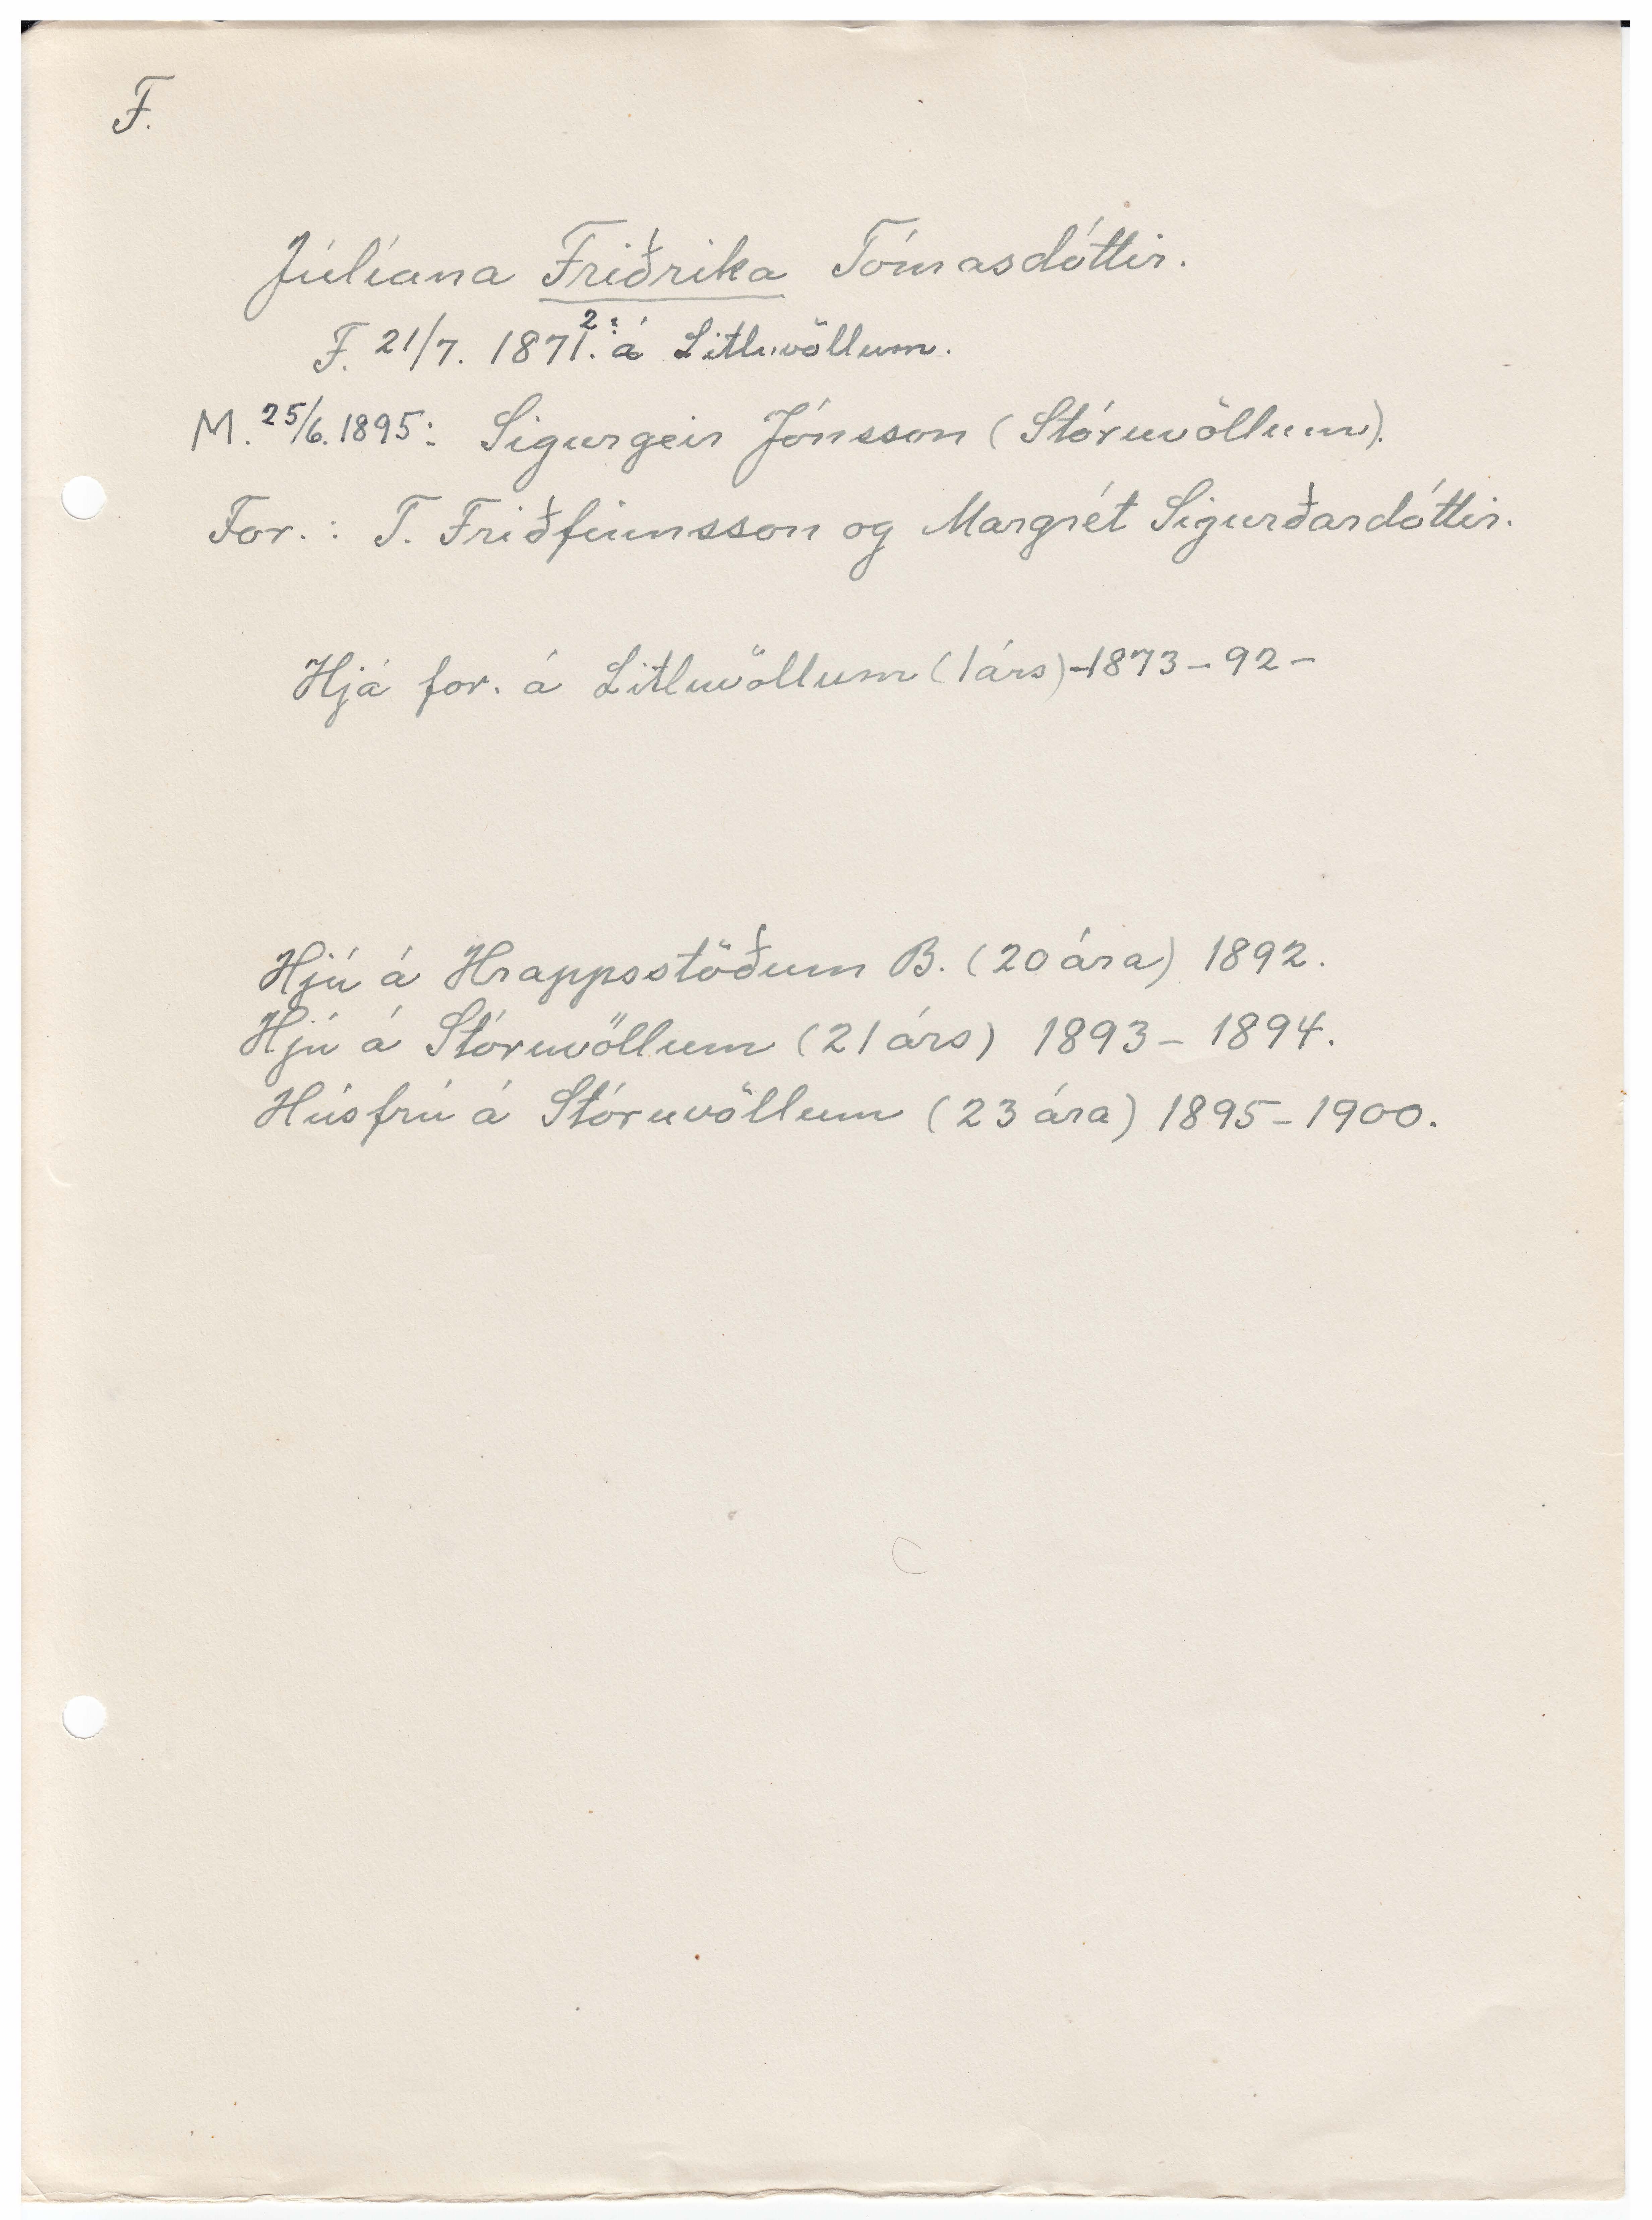 F.
Júlíana Friðrika Tómasdóttir.
F. 21/7. 1871. 2? á Litluvöllum.
M. 25/6. 1895: Sigurgeir Jónsson (Stóruvöllum).
For.: T. Friðfinnsson og Margrét Sigurðardóttir.
Hjá for. á Litluvöllum (1árs) -1873-92-
Hjú á Hrappsstöðum B. (20 ára) 1892.
Hjú á Stóruvöllum (21 árs) 1893-1894.
Húsfrú á Stóruvöllum (23 ára) 1895-1900.